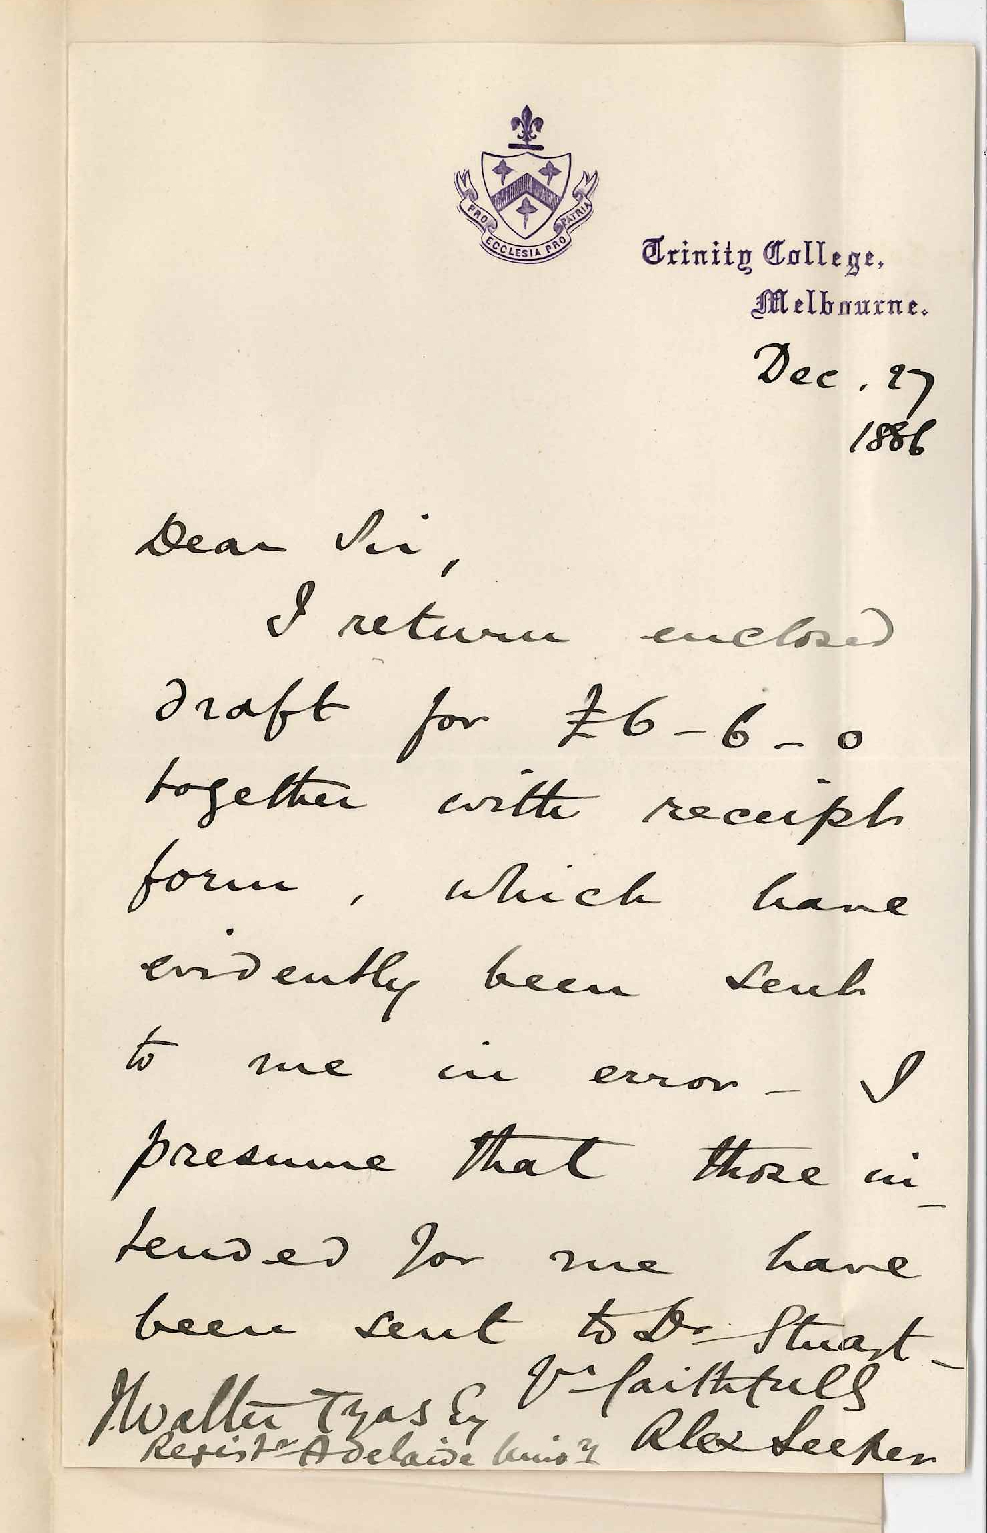 PRO ECCLESIA PRO PATRIA
Trinity College,
Melbourne.
Dec. 27
1886
Dear Sir,
I return enclosed
draft for £6-6-0
together with receipt
form, which have
evidently been sent
to me in error - I
presume that those in-
tended for me have
been sent to Dr Stuart -
Yrs faithfully
Alex Leeper
J Walter Tyas Esq
Registr Adelaide Univy